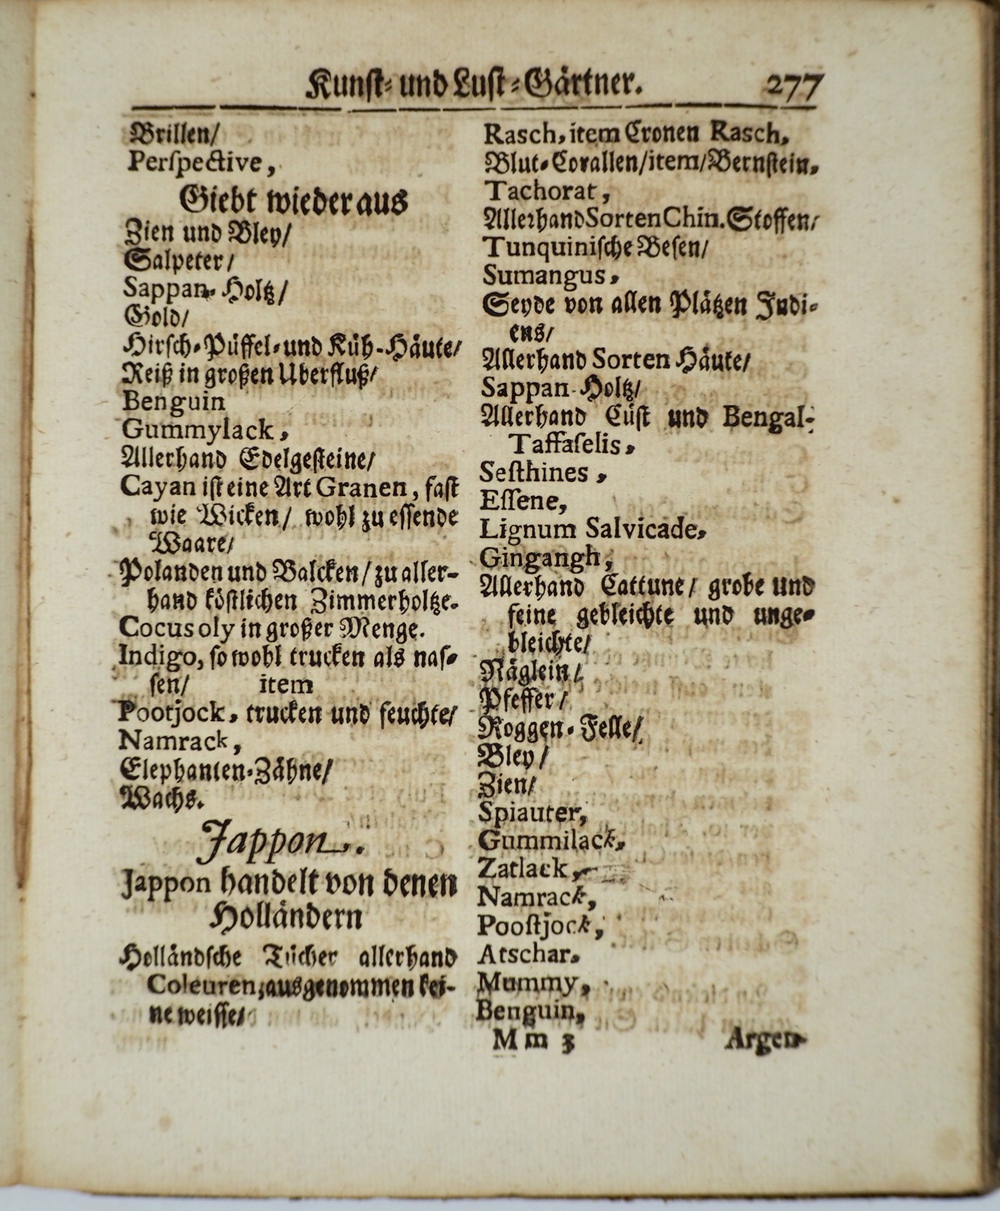 Kunst- und Lust-Gärtner. 277
Brillen/
Perspective,
Giebt wieder aus
Zien und Bley/
Salpeter/
Sappan-Holtz/
Gold/
Hirsch-Püffel-und Küh-Häute/
Reiß in großen Uberfluß/
Benguin
Gummylack,
Allerhand Edelgesteine/
Cayan ist eine Art Granen, fast
wie Wicken/ wohl zu essende
Waare/
Polanden und Balcken/zu aller-
hand köstlichen Zimmerholtze.
Cocus oly in großer Menge.
Indigo, so wohl trucken als nas-
sen/ item
Pootjock, trucken und feuchte/
Namrack,
Elephanten-Zähne/
Wachs.
Jappon.
Jappon handelt von denen
Holländern
Holländsche Tücher allerhand
Coleuren, ausgenommen kei-
ne weisse/
Rasch, item Cronen Rasch,
Blut-Corallen/item/Bernstein,
Tachorat,
Allerhand Sorten Chin. Stoffen/
Tunquinische Besen/
Sumangus,
Seyde von allen Plätzen Indi-
ens/
Allerhand Sorten Häute/
Sappan-Holtz/
Allerhand Cüst und Bengal-
Taffaselis,
Sesthines,
Essene,
Lignum Salvicade,
Gingangh,
Allerhand Cattune/ grobe und
feine gebleichte und unge-
bleichte/
Näglein/
Pfeffer/
Roggen-Felle/
Bley/
Zien/
Spiauter,
Gummilack,
Zatlack,
Namrack,
Poostjock,
Atschar,
Mummy,
Benguin,
Mm 3 Argen-